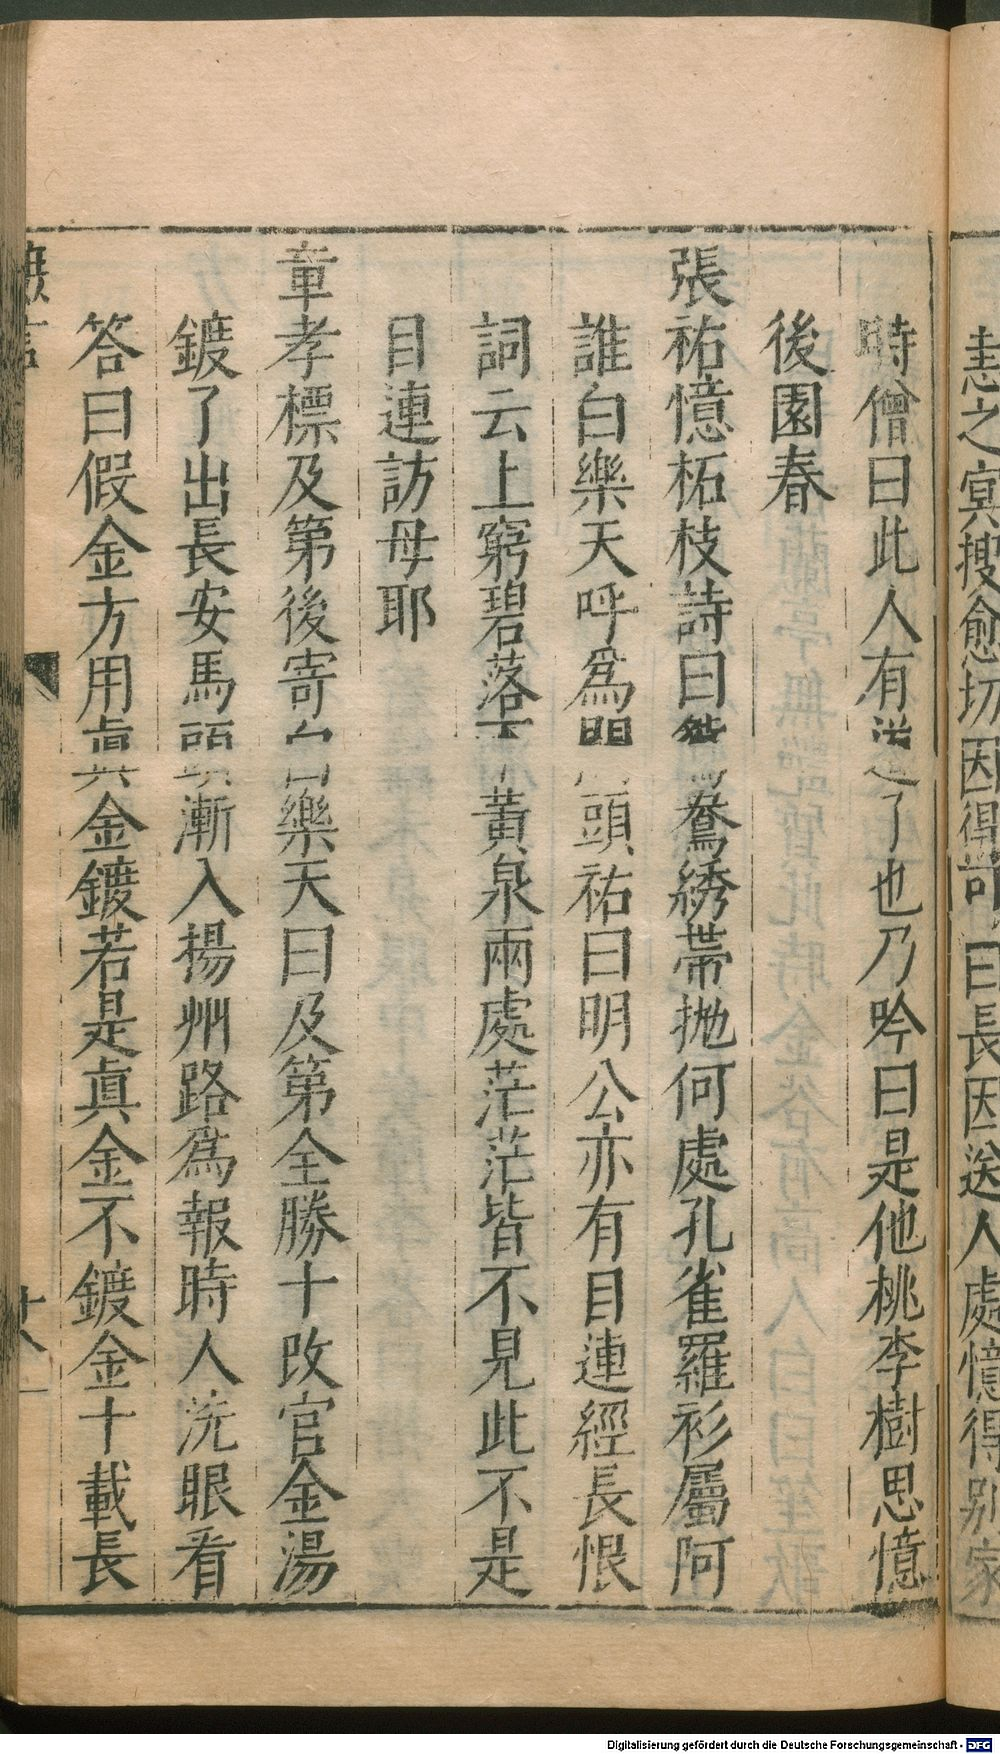 恚之寞搜愈切因得可曰長因送人處憶得别家
時僧曰此人有送了也乃吟曰是他桃李樹思憶
後園春
張祐憶柘枝詩曰鴛鴦綉帶抛何處孔雀羅衫屬阿
誰白樂天呼爲問頭祐曰明公亦有目連經長恨
詞云上窮碧落下黃泉兩處茫茫皆不見此不是
目連訪母耶
章孝標及第後寄白樂天曰及第全勝十改官金湯
鍍了出長安馬頭漸入揚州路爲報時人洗眼看
答曰假金方用眞金鍍若是眞金不鍍金十載長
廿八
Digitalisierung gefördert durch die Deutsche Forschungsgemeinschaft - DFG